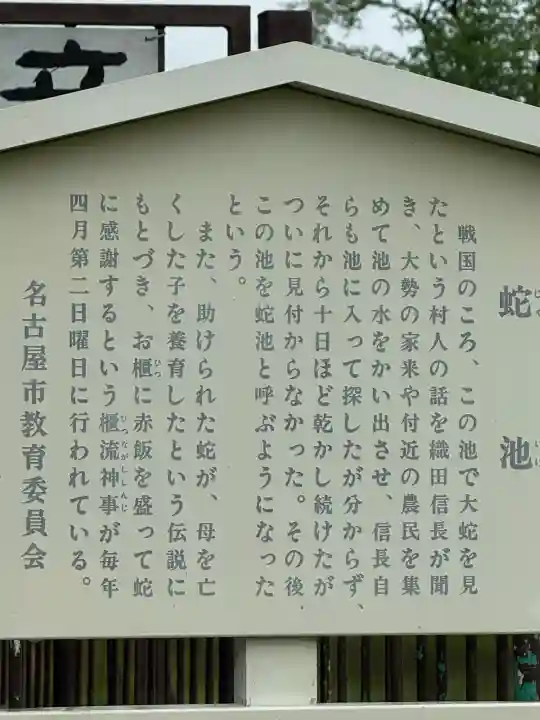 蛇池
戦国のころ、この池で大蛇を見
たという村人の話を織田信長が聞
き、大勢の家来や付近の農民を集
めて池の水をかい出させ、信長自
らも池に入って探したが分からず、
それから十日ほど乾かし続けたが
ついに見付からなかった。その後、
この池を蛇池と呼ぶようになった
という。
また、助けられた蛇が、母を亡
くした子を養育したという伝説に
もとづき、お櫃に赤飯を盛って蛇
に感謝するという櫃流神事が毎年
四月第二日曜日に行われている。
名古屋市教育委員会